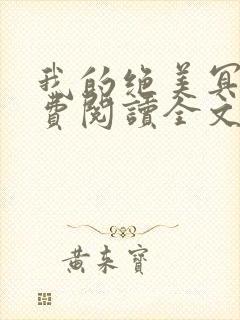 我的绝美冥
費閱讀全文
黄来寶